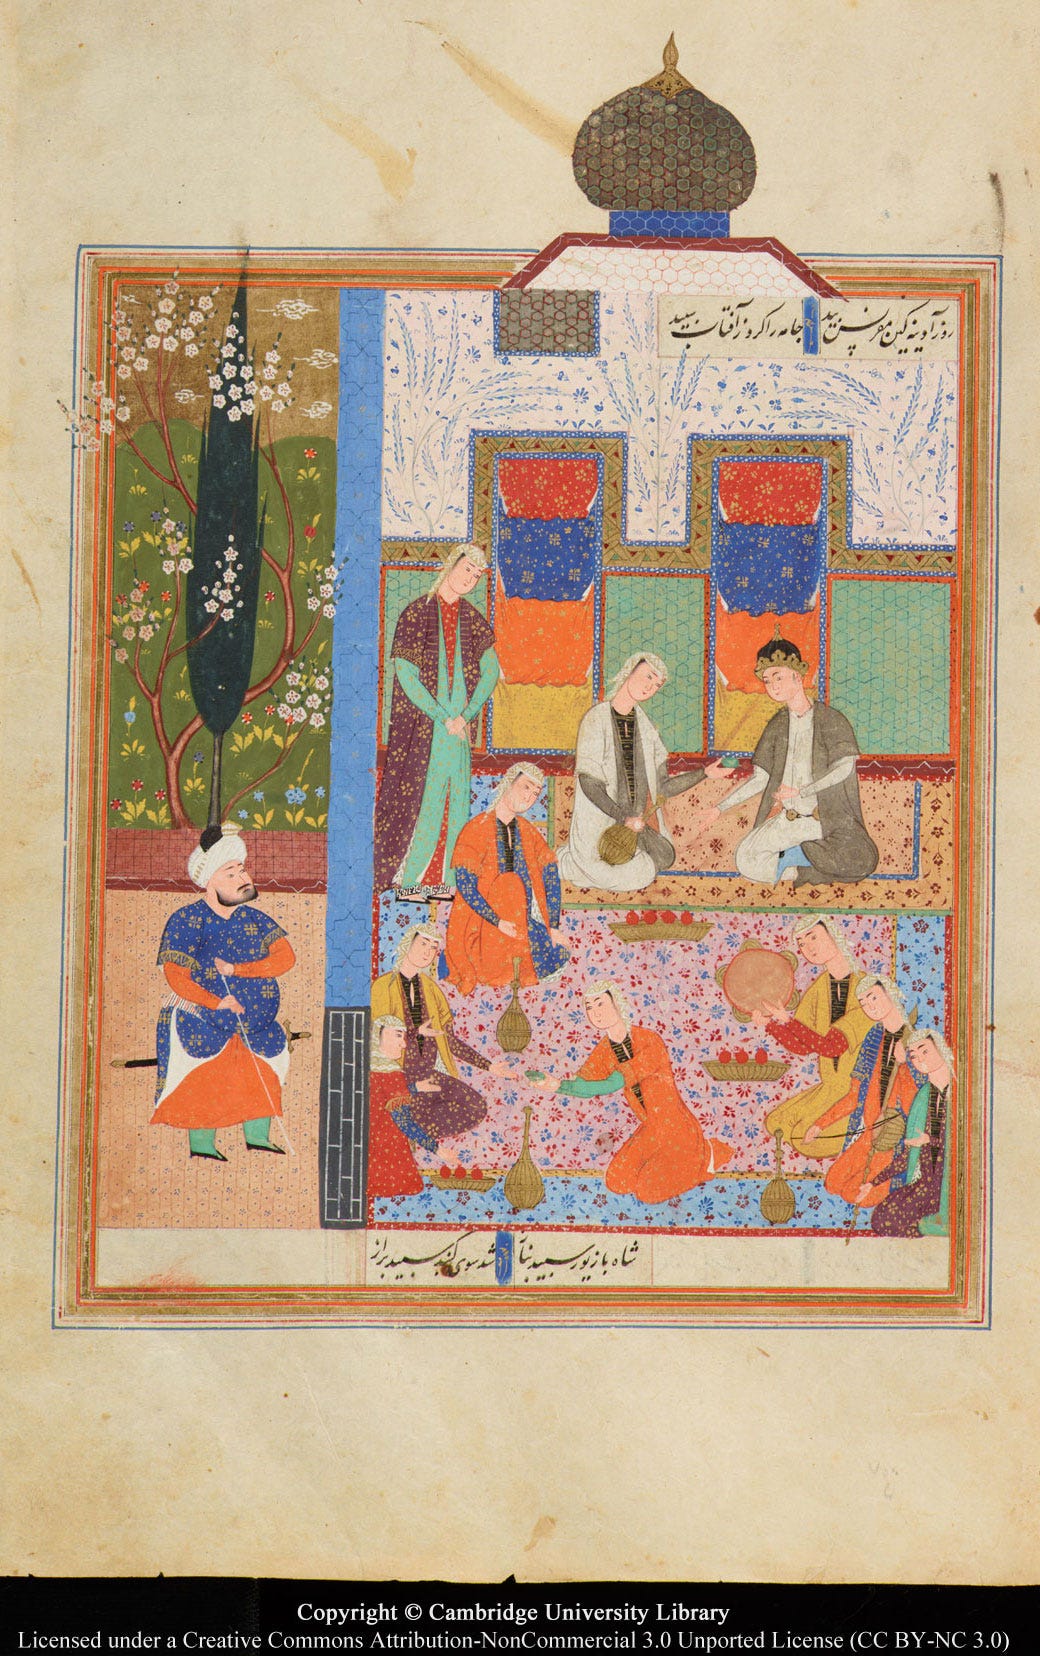 روز آدینه کین مقرنس بید جامه را کرد ز آفتاب سپید
شاه با زیور سپید بناز شد سوی گنبد سپید براز
Copyright © Cambridge University Library
Licensed under a Creative Commons Attribution-NonCommercial 3.0 Unported License (CC BY-NC 3.0)